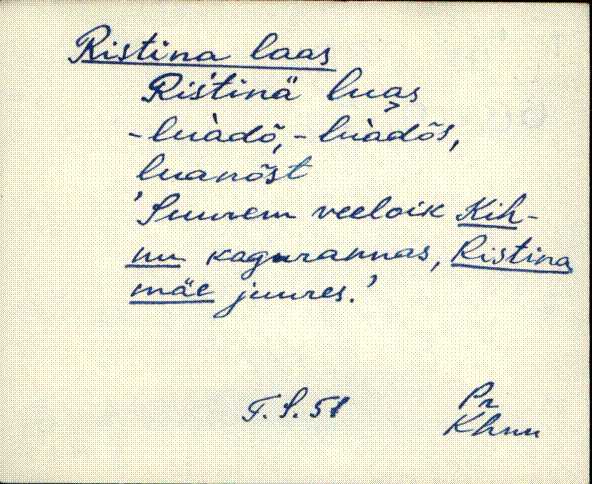 Ristina laas
Rist́inä luas
-luàdõ, -luàdõs,
luanõst
'Suurem veeloik Kih-
nu kagurannas, Ristina
mäe juures.'
T. S. 51 Pr
Khnu